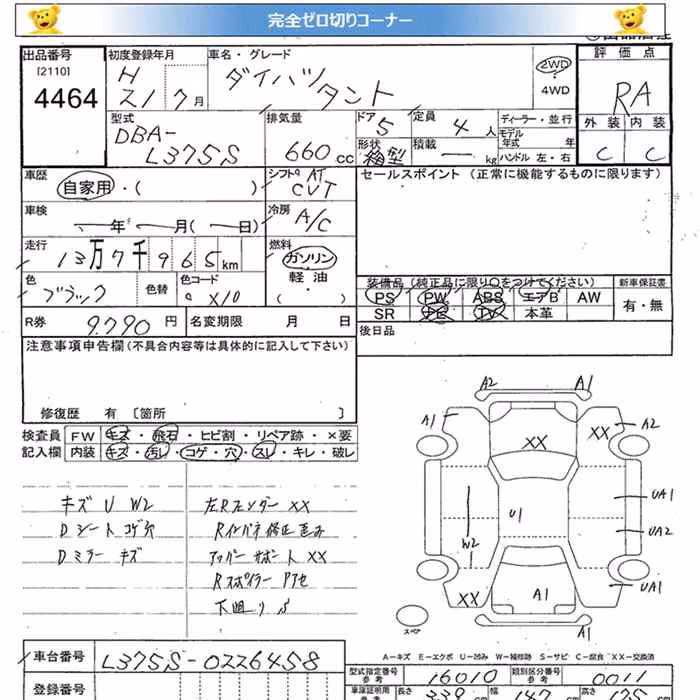 完全ゼロ切りコーナー
出品番号
[2110]
4464
初度登録年月
H
21 7 月
車名・グレード
ダイハツ
タント
2WD
4WD
評価点
RA
外装 内装
C C
型式
DBA-
L375S
排気量
660 cc
ドア
5
定員
4 人
形状
箱型
積載
― kg
ディーラー・並行
モデル
年式 年
ハンドル 左・右
車歴
自家用・( )
シフト AT
CVT
セールスポイント (正常に機能するものに限ります)
車検
年 月( 日)
冷房
A/C
走行
13万7千965km
燃料
ガソリン
軽・油
( )
色
ブラック
色替
色コード
X10
装備品(純正品に限り○をつけてください)
新車保証書
PS PW ABS エアB AW
SR ナビ TV 本革
有・無
R券
9.790 円
名変期限 月 日
後日品
注意事項申告欄(不具合内容等は具体的に記入して下さい)
修復歴 有 〔箇所 〕
検査員 FW キズ・飛石・ヒビ割・リペア跡・×要
記入欄 内装 キズ・汚レ・コゲ・穴・スレ・キレ・破レ
キズ U W2
Dシート コゲ穴
Dミラー キズ
左Rフェンダー XX
Rインパネ修正歪み
アッパーサポート XX
Rスポイラー アセ
下廻り S
A2 A1
A1 A2
XX XX
UA1
U1
UA2
W2
UA1
XX
A1
スペア
A1
A-キズ E-エクボ U-凹み W-補修跡 S-サビ C-腐食 XX-交換済
車台番号
L375S-0226458
型式指定番号
参考
16010
類別区分番号
参考
0011
登録番号
車庫証明用
参考
長さ
339 cm
幅
147 cm
高さ
175 cm